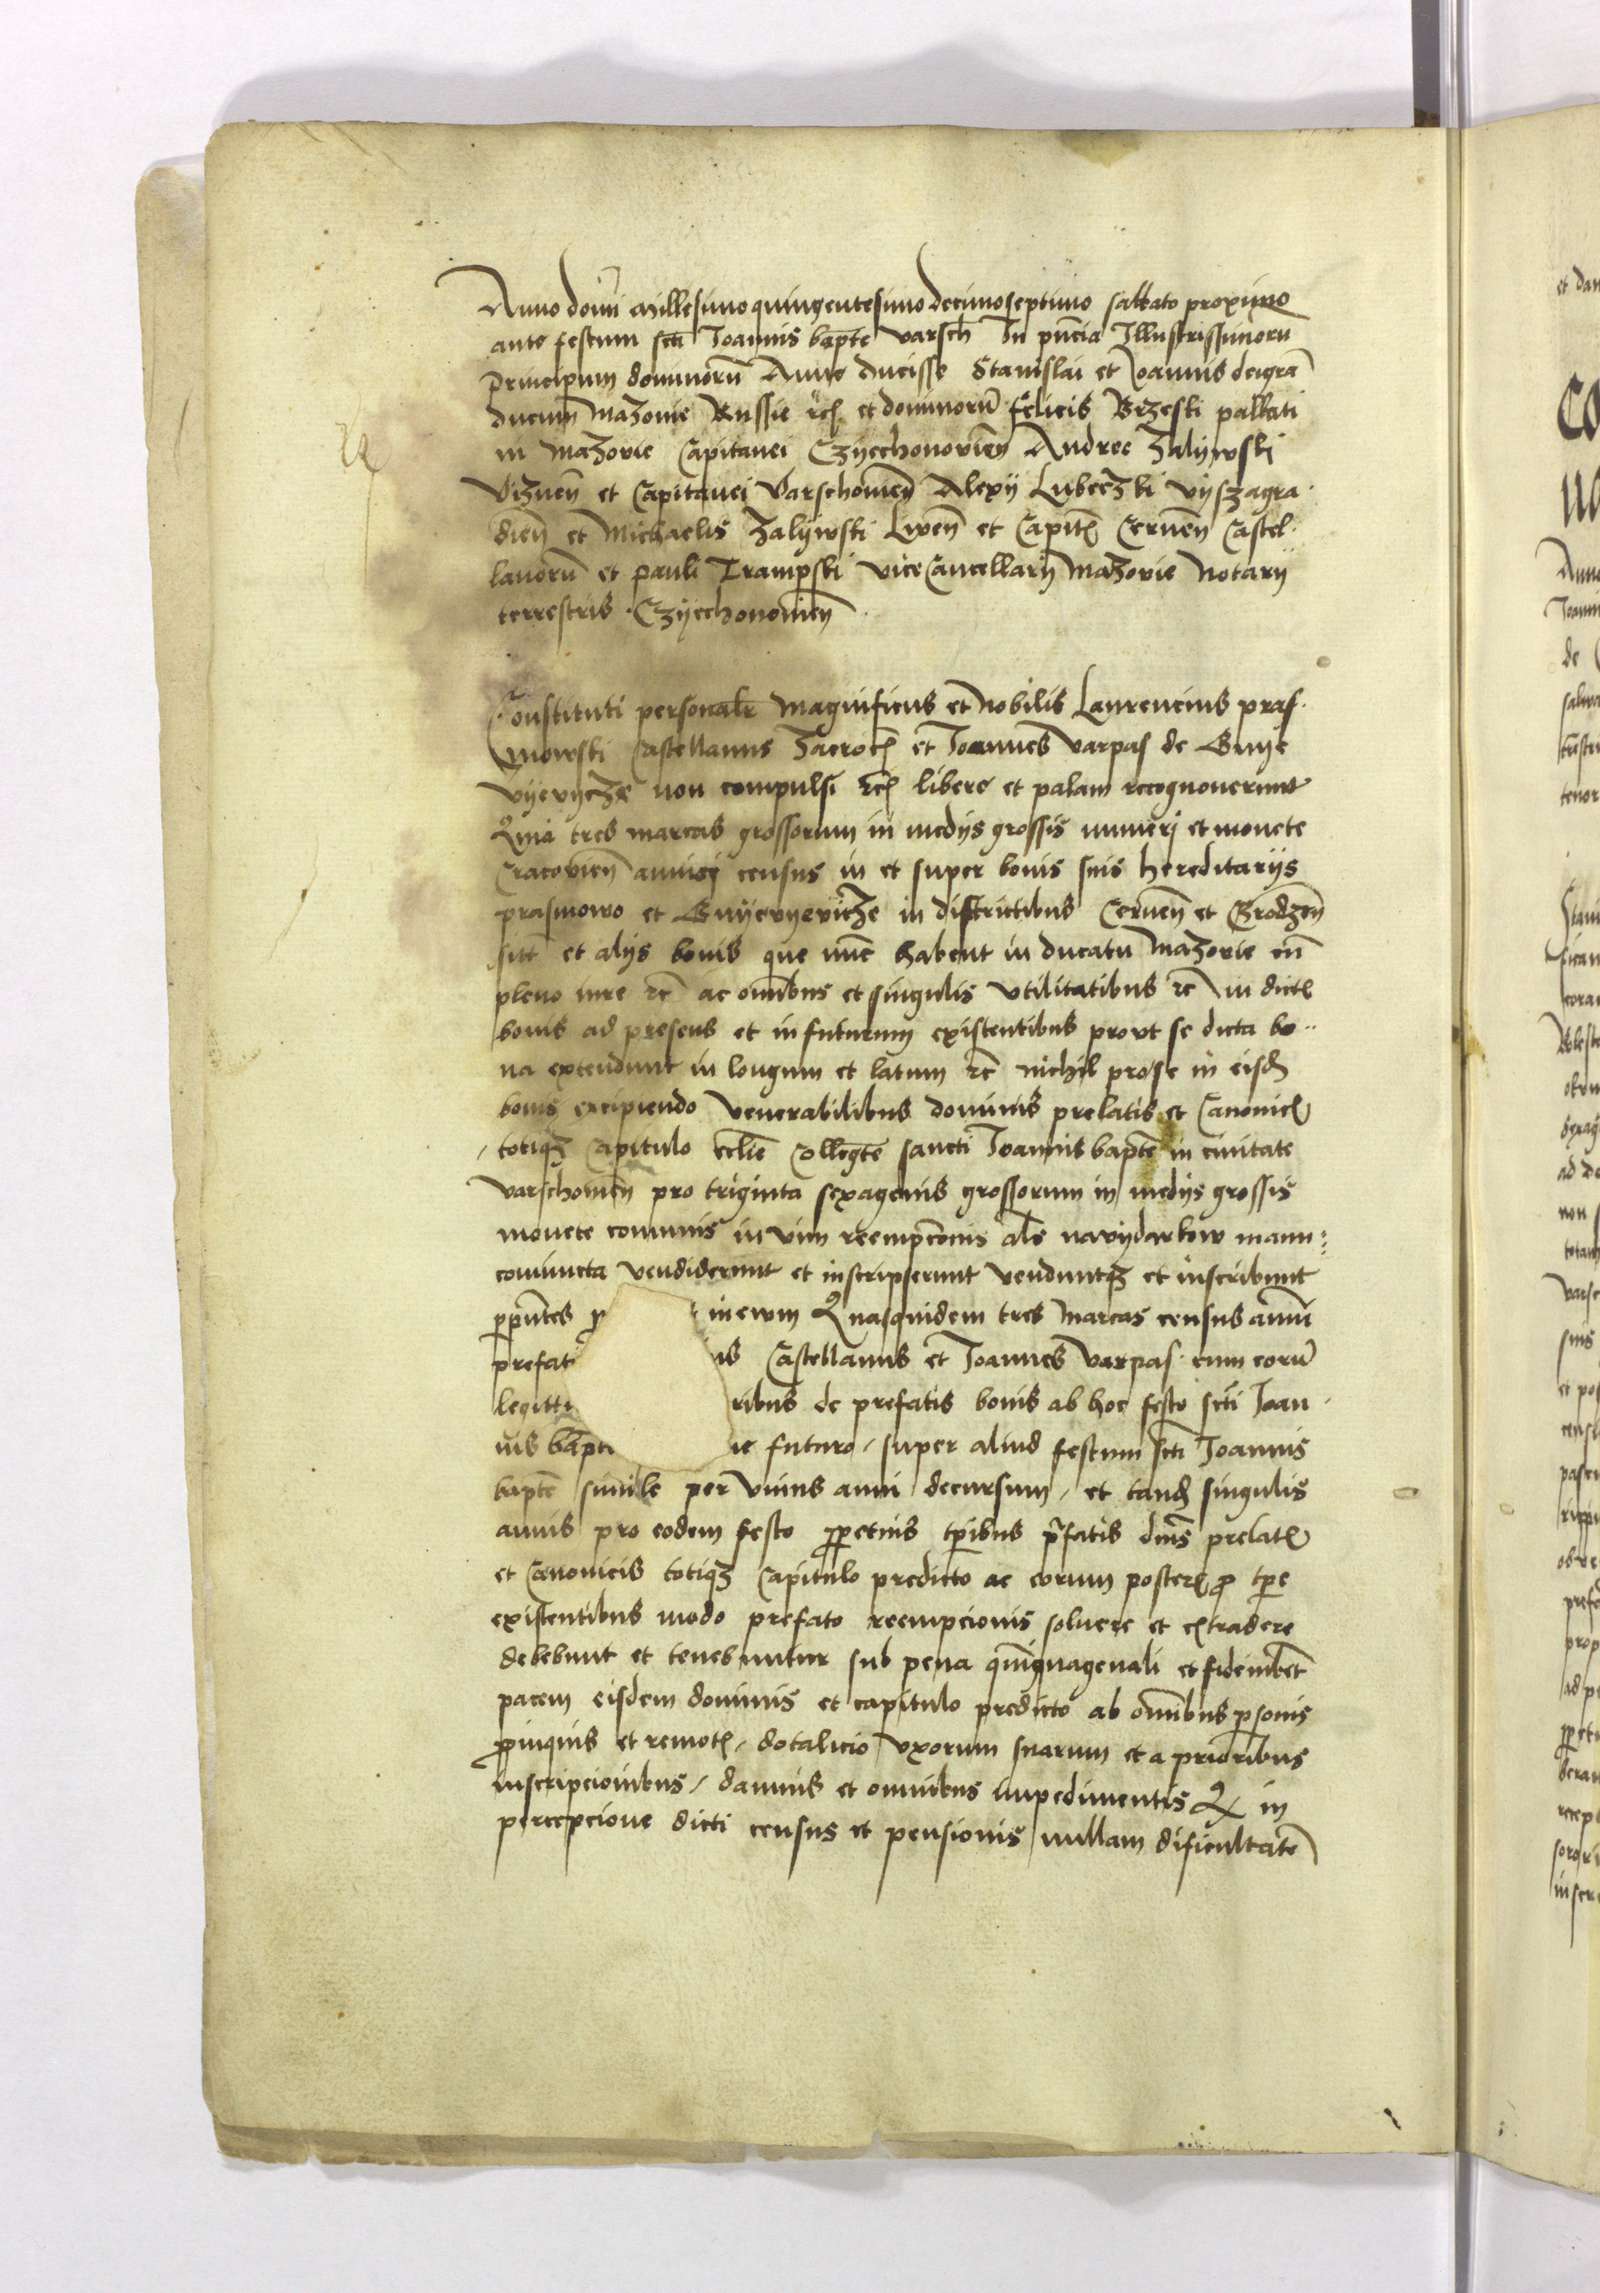 Anno domi Millesimo quingentesimo decimoseptimo sabbato proximo
ante festum scti Joannis bapte varsch In pñcia Illustrissimorũ
Principum dominorũ Anne ducisse Stanislai et Joannis dei grã
ducum Mazovie Russie rc et dominorũ felicis Brzeski pallati
ni Mazovie Capitanei Czyechonovieñ Andree Zalywski
Viznen et Capitanei Varschovieñ Alexij Lubeczki vysszagra
dieñ et Michaelis Zalywski Liveñ et Capite Cerueñ Castel
lanorũ et pauli Trampski vice Cancellarij Mazovie Notarij
terrestris Czyechonovieñ
Constituti personalr Magnificus et Nobilis Laurencius pras
mowski Castellanus Zacroc et Joannes Varpas de Gnye
vyevycze non compulsi rc libere et palam recognoverunt
Quia tres marcas grossorum in medijs grossis numeri et monete
Cracovieñ annuj census in et super bonis suis hereditarijs
prasmowo et Gnyevyevicze in districtibus Cerueñ et Grodzeñ
sitt et alijs bonis que nunc habent in ducatu Mazovie cũ
pleno iure rc ac omnibus et singulis vtilitatibus rc in dictis
bonis ad presens et in futurum existentibus provt se dicta bo
na extendunt in longum et latum rc nichil pro se in eisd
bonis excipiendo venerabilibus dominis prelatis et Canonic
totiqz Capitulo ecclie Collegte sancti Joannis bapte in civitate
varschovieñ pro triginta sexagenis grossorum in medijs grossis
monete communis in vim reempcõnis als navydarkow manu
coniuncta vendiderunt et inscripserunt venduntqz et inscribunt
ppñtes p in ewm Quasquidem tres Marcas census annui
prefat us Castellanus et Joannes Varpas cum eorũ
legitti ribus de prefatis bonis ab hoc festo scti Joan
nis bapti ie futuro super aliud festum scti Joannis
bapte simile per vnius anni decursum et tand singulis
annis pro eodem festo ppetuis tpibus pfatis dnis prelat
et Canonicis totiqz Capitulo predicto ac eorum poster p tpe
existentibus modo prefato reempcionis solvere et extradere
debebunt et tenebuntur sub pena quinquagenali et fideiubet
pacem eisdem dominis et capitulo predicto ab omnibus psonis
ppinquis et remot dotalicio vxorum suarum et a prioribus
inscripcionibus damnis et omnibus impedimentis Q in
percepcione dicti census et pensionis nullam dificultate